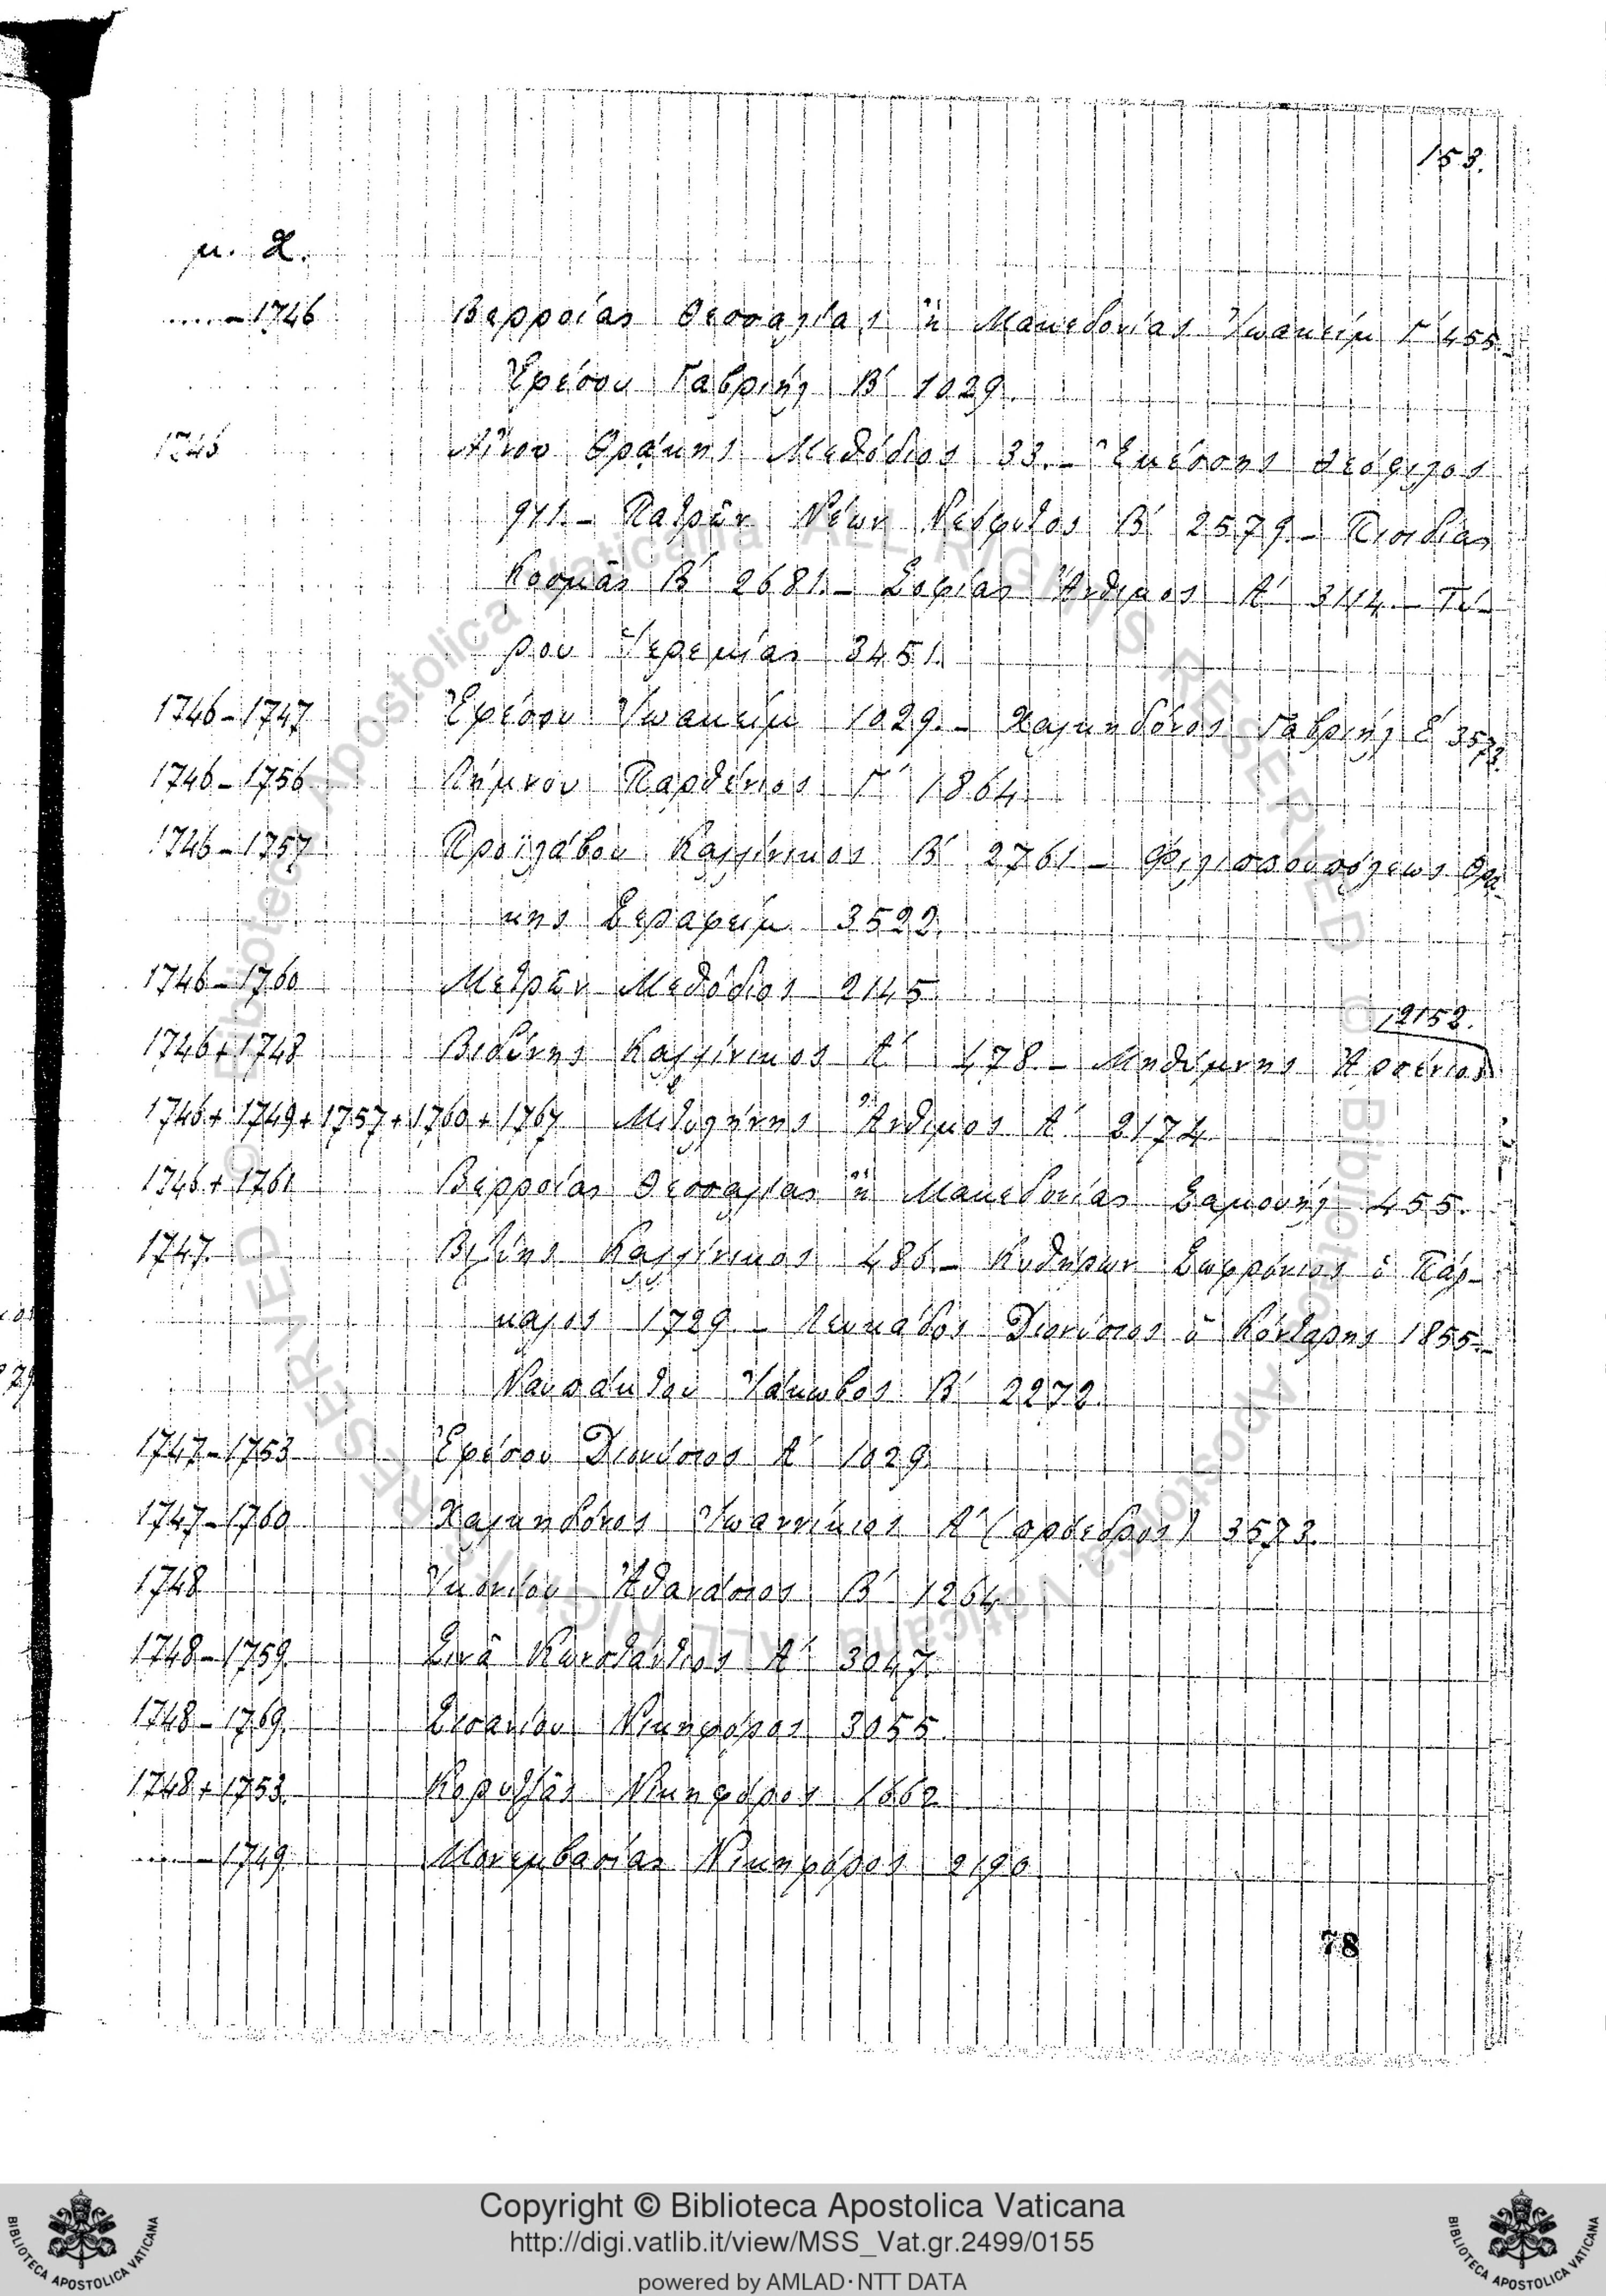 153.
μ. Χ.
.... – 1746 Βερροίας Θεσσαλίας ἢ Μακεδονίας Ἰωακεὶμ Γ΄ 455.
Ἐφέσου Γαβριὴλ Β΄ 1029.
1746 Αἴνου Θράκης Μεθόδιος 33. – Ἐδέσσης Θεόφιλος
911. – Πατρῶν Νέων Νεόφυτος Β΄ 2579 – Πισιδίας
Κοσμᾶς Β΄ 2681. – Σοφίας Ἄνθιμος Α΄ 3114. – Τύ-
ρου Ἱερεμίας 3451.
1746 – 1747 Ἐφέσου Ἰωακεὶμ 1029. – Χαλκηδόνος Γαβριὴλ 3573.
1746 – 1756 Λήμνου Παρθένιος Γ΄ 1864.
1746 – 1757 Προϊλάβου Καλλίνικος Β΄ 2761 – Φιλιππουπόλεως Θρᾴ
κης Σεραφεὶμ 3522.
1746 – 1760 Μετρῶν Μεθόδιος 2145.
2152.
1746 + 1748 Βιδύνης Καλλίνικος Α΄ 478 – Μηθύμνης
1746 + 1749 + 1757 + 1760 + 1767 Μιτυλήνης Ἄνθιμος Α΄ 2174
1746 + 1761 Βερροίας Θεσσαλίας ἢ Μακεδονίας Σαμουὴλ 455.
1747. Βιζύης Καλλίνικος 486 – Κυθήρων Σωφρόνιος ὁ Πάγ-
καλος 1729. – Λευκάδος Διονύσιος ὁ 1855 –
Ναυπάκτου Ἰάκωβος Β΄ 2272.
1747 – 1753 Ἐφέσου Διονύσιος Α΄ 1029.
1747 – 1760 Χαλκηδόνος Ἰωαννίκιος Α΄ (πρόεδρος) 3573.
1748 Ἀθανάσιος Β΄ 1264
1748 – 1759 Σινᾶ Κωνστάντιος Α΄ 3047
1748 – 1769. Σισανίου Νικηφόρος 3055.
1748 + 1753. Νικηφόρος 1662
.... – 1749 Μονεμβασίας Νικηφόρος 2190
78
Copyright © Biblioteca Apostolica Vaticana
http://digi.vatlib.it/view/MSS_Vat.gr.2499/0155
powered by AMLAD·NTT DATA
BIBLIOTECA APOSTOLICA VATICANA
BIBLIOTECA APOSTOLICA VATICANA